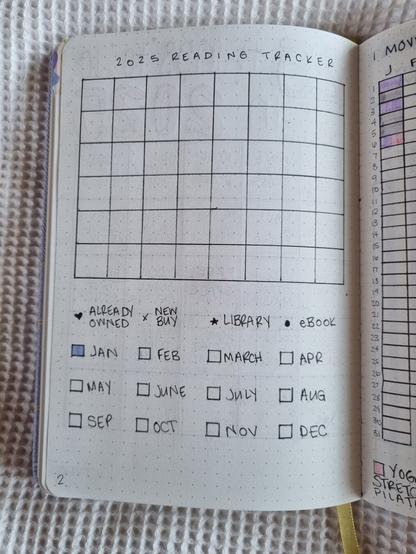 2025 READING TRACKER
♥ ALREADY OWNED × NEW BUY ★ LIBRARY • eBOOK
JAN FEB MARCH APR
MAY JUNE JULY AUG
SEP OCT NOV DEC
2
J
1
2
3
4
5
6
7
8
9
10
11
12
13
14
15
16
17
18
19
20
21
22
23
24
25
26
27
28
29
30
31